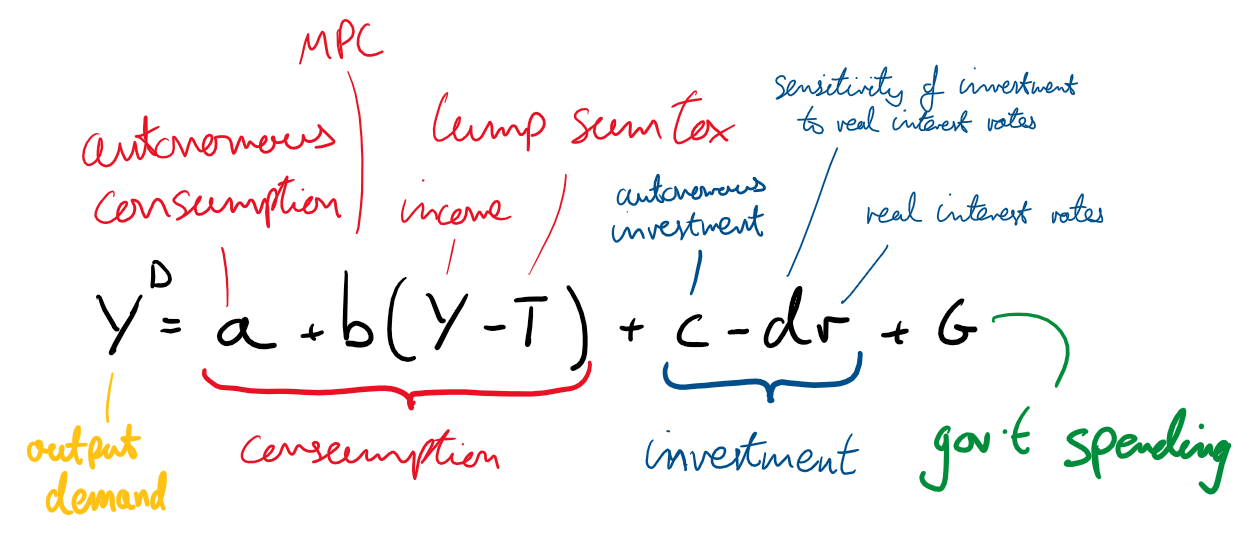 MPC
autonomous
consumption
income
lump sum tax
autonomous
investment
sensitivity of investment
to real interest rates
real interest rates
Y^D = a + b(Y - T) + c - dr + G
output
demand
consumption
investment
gov't spending